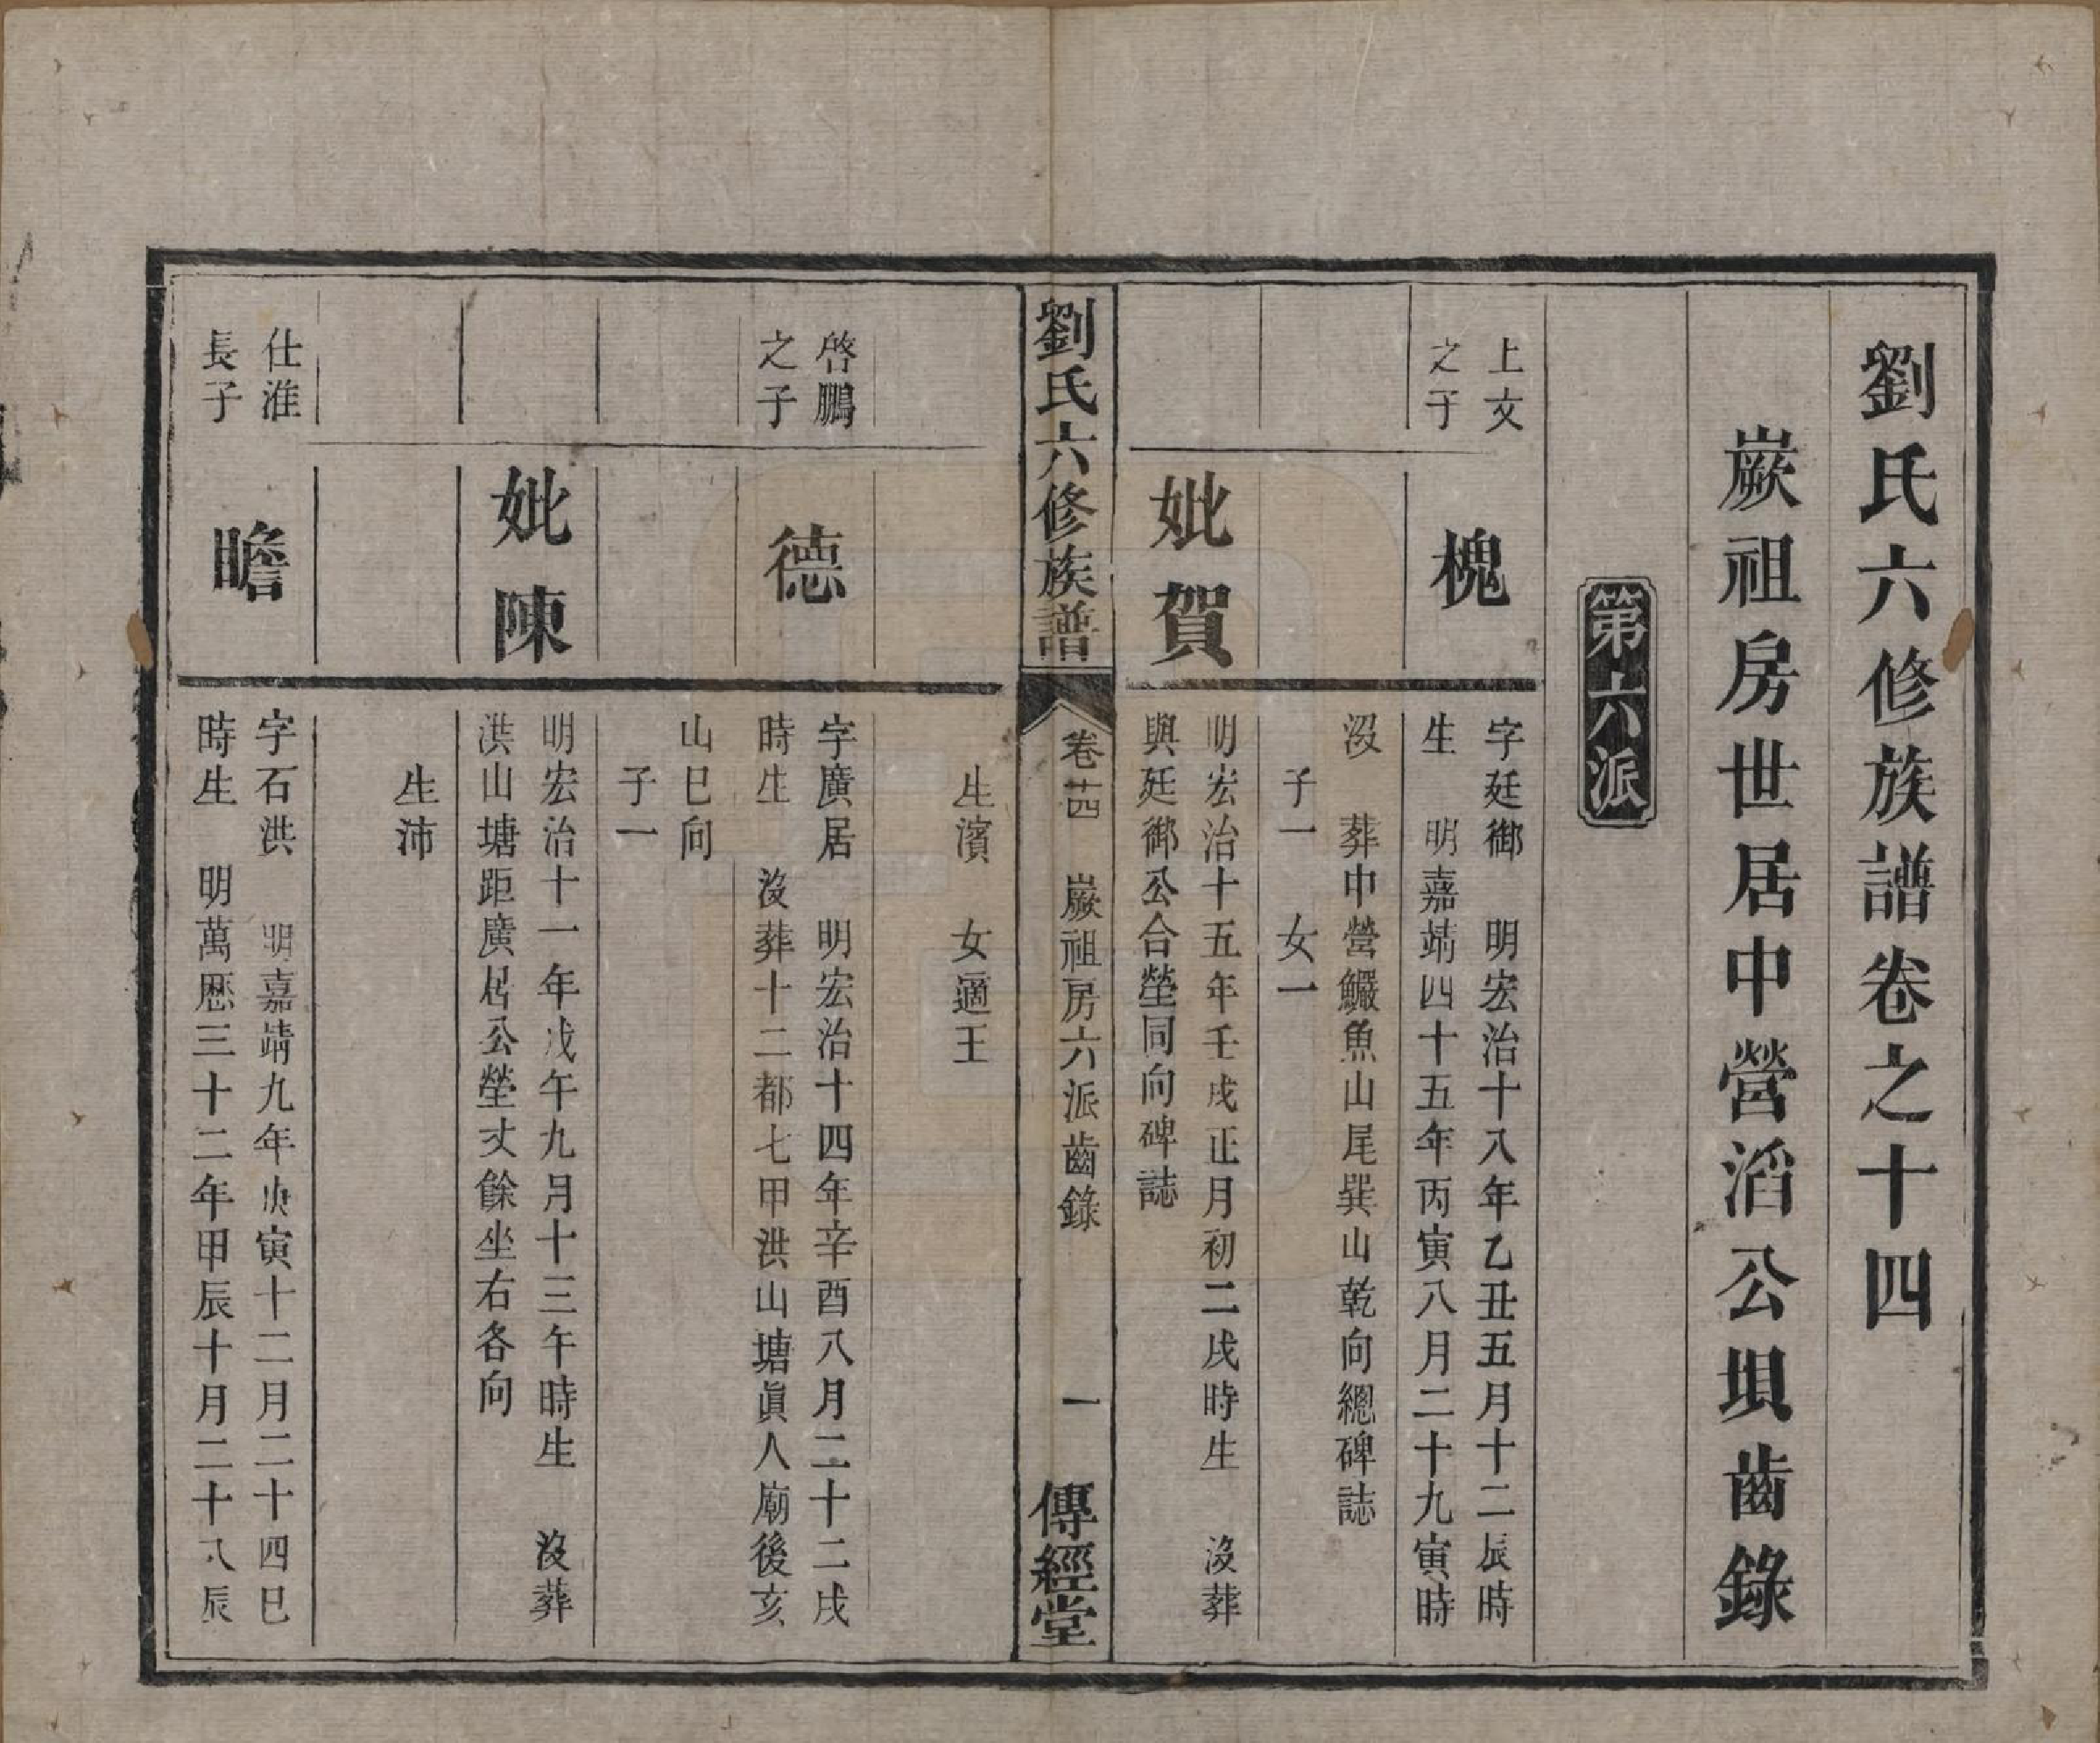 劉氏六修族譜卷之十四
嚴祖房世居中營滔公垻齒錄
第六派
上文
之子
槐
字廷御　明宏治十八年乙丑五月十二辰時
生　明嘉靖四十五年丙寅八月二十九寅時
沒　葬中營鱺魚山尾巽山乾向總碑誌
子一　女一
妣賀
明宏治十五年壬戌正月初二戌時生　沒葬
與廷御公合塋同向碑誌
劉氏六修族譜
卷十四　嚴祖房六派齒錄
一
傳經堂
生濱　女適王
啓鵬
之子
德
字廣居　明宏治十四年辛酉八月二十二戌
時生　沒葬十二都七甲洪山塘眞人廟後亥
山巳向
子一
妣陳
明宏治十一年戊午九月十三午時生　沒葬
洪山塘距廣居公塋丈餘坐右各向
生沛
仕淮
長子
瞻
字石洪　明嘉靖九年庚寅十二月二十四巳
時生　明萬厯三十二年甲辰十月二十八辰